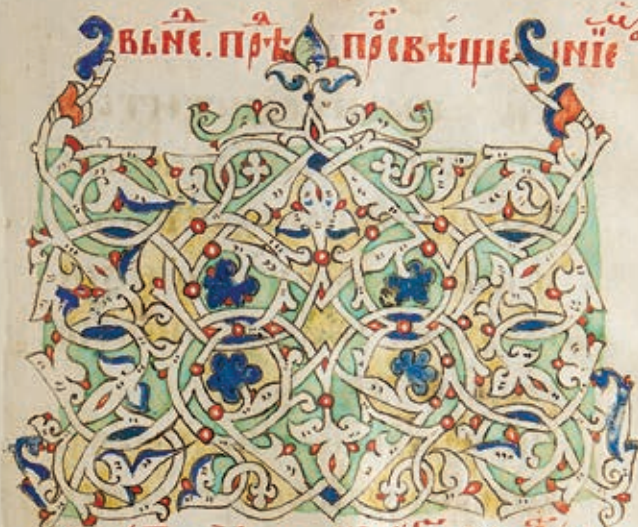 ВЬ НЕⷣ. ПРѢⷣ ПРⷪСВѢЩЕНЇЕ